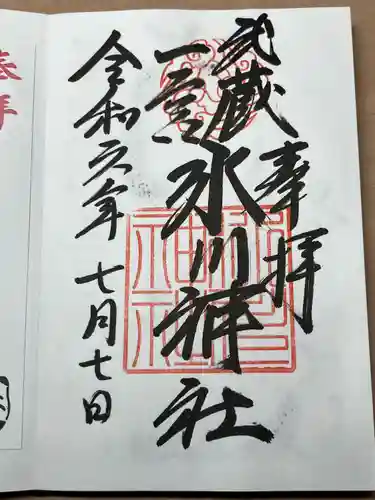 奉拝
武蔵
一宮
氷川神社
令和六年 七月七日
奉拝